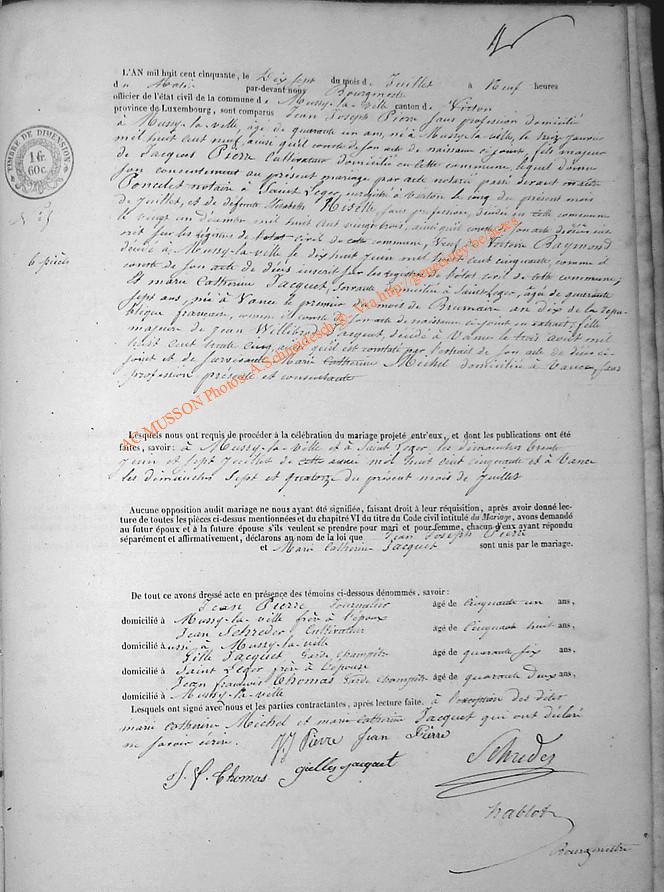 L'AN mil huit cent cinquante, le Dix sept du mois de Juillet à Neuf heures
du Matin par-devant nous Bourgmestre
officier de l'état civil de la commune de Mussy-la-ville canton de Virton
province de Luxembourg, sont comparus Jean Joseph Pierre sans profession domicilié
à Mussy-la-ville, âgé de quarante un ans, né à Mussy-la-ville, le treize Janvier
mil huit cent neuf, ainsi qu'il conste de son acte de naissance ci-joint, fils majeur
de Jacques Pierre Cultivateur domicilié en cette commune, lequel donne
son consentement au présent mariage par acte notarié passé devant maître
Poncelet notaire à Saint Léger, enregistré à Virton le cinq du présent mois
de Juillet, et de défunte Elisabeth sans profession, décédée en cette commune
le vingt un décembre mil huit cent vingt trois, ainsi qu'il conste de son acte de décès
sur les registres de l'état civil de cette commune, Veuf de Victoire Raymond
décédée à Mussy-la-ville le dix huit juin mil huit cent cinquante, comme il
conste de son acte de décès inscrit sur les registres de l'état civil de cette commune;
Et marie Catherine Jacquet, servante, domicilié à Saint Léger, âgée de quarante
sept ans, née à Vance le premier du mois de Brumaire an dix de la répu-
blique française, comme il conste de son acte de naissance ci-joint en extrait; fille
majeure de Jean Jacquet, décédé à Vance le trois août mil
huit cent trente cinq, ainsi qu'il est constaté par l'extrait de son acte de décès ci-
joint et de survivante Marie Catherine Michel domiciliée à Vance, sans
profession présente et consentante
6 pièces
TIMBRE DE DIMENSION
1 fr.
60c.
Lesquels nous ont requis de procéder à la célébration du mariage projeté entr'eux, et dont les publications ont été
faites, savoir: à Mussy-la-ville et à Saint Léger, les dimanches trente
Juin et sept Juillet de cette année mil huit cent cinquante et à Vance
les dimanches Sept et quatorze du présent mois de Juillet
Aucune opposition audit mariage ne nous ayant été signifiée, faisant droit à leur réquisition, après avoir donné lec-
ture de toutes les pièces ci-dessus mentionnées et du chapitre VI du titre du Code civil intitulé du Mariage, avons demandé
au futur époux et à la future épouse s'ils veulent se prendre pour mari et pour femme, chacun d'eux ayant répondu
séparément et affirmativement, déclarons au nom de la loi que Jean Joseph Pierre
et Marie Catherine Jacquet sont unis par le mariage.
De tout ce avons dressé acte en présence des témoins ci-dessous dénommés, savoir:
Jean Pierre Journalier âgé de Cinquante un ans,
domicilié à Mussy-la-ville frère à l'époux
Jean Schreder, Cultivateur âgé de Cinquante huit ans,
domicilié aussi à Mussy-la-ville
Gille Jacquet Garde Champêtre âgé de quarante six ans,
domicilié à Saint Léger frère à l'épouse
Jean François Thomas Garde Champêtre âgé de quarante deux ans,
domicilié à Mussy-la-ville
Lesquels ont signé avec nous et les parties contractantes, après lecture faite. à l'exception des dites
marie Catherine Michel et marie Catherine Jacquet qui ont déclaré
ne savoir écrire.
J.J Pierre Jean Pierre
Schreder
J. f. Thomas gielles jacquet
hablot
Bourgmestre
AC MUSSON Photog. A. Schneidesch © - Via http://geneancy.be/actes